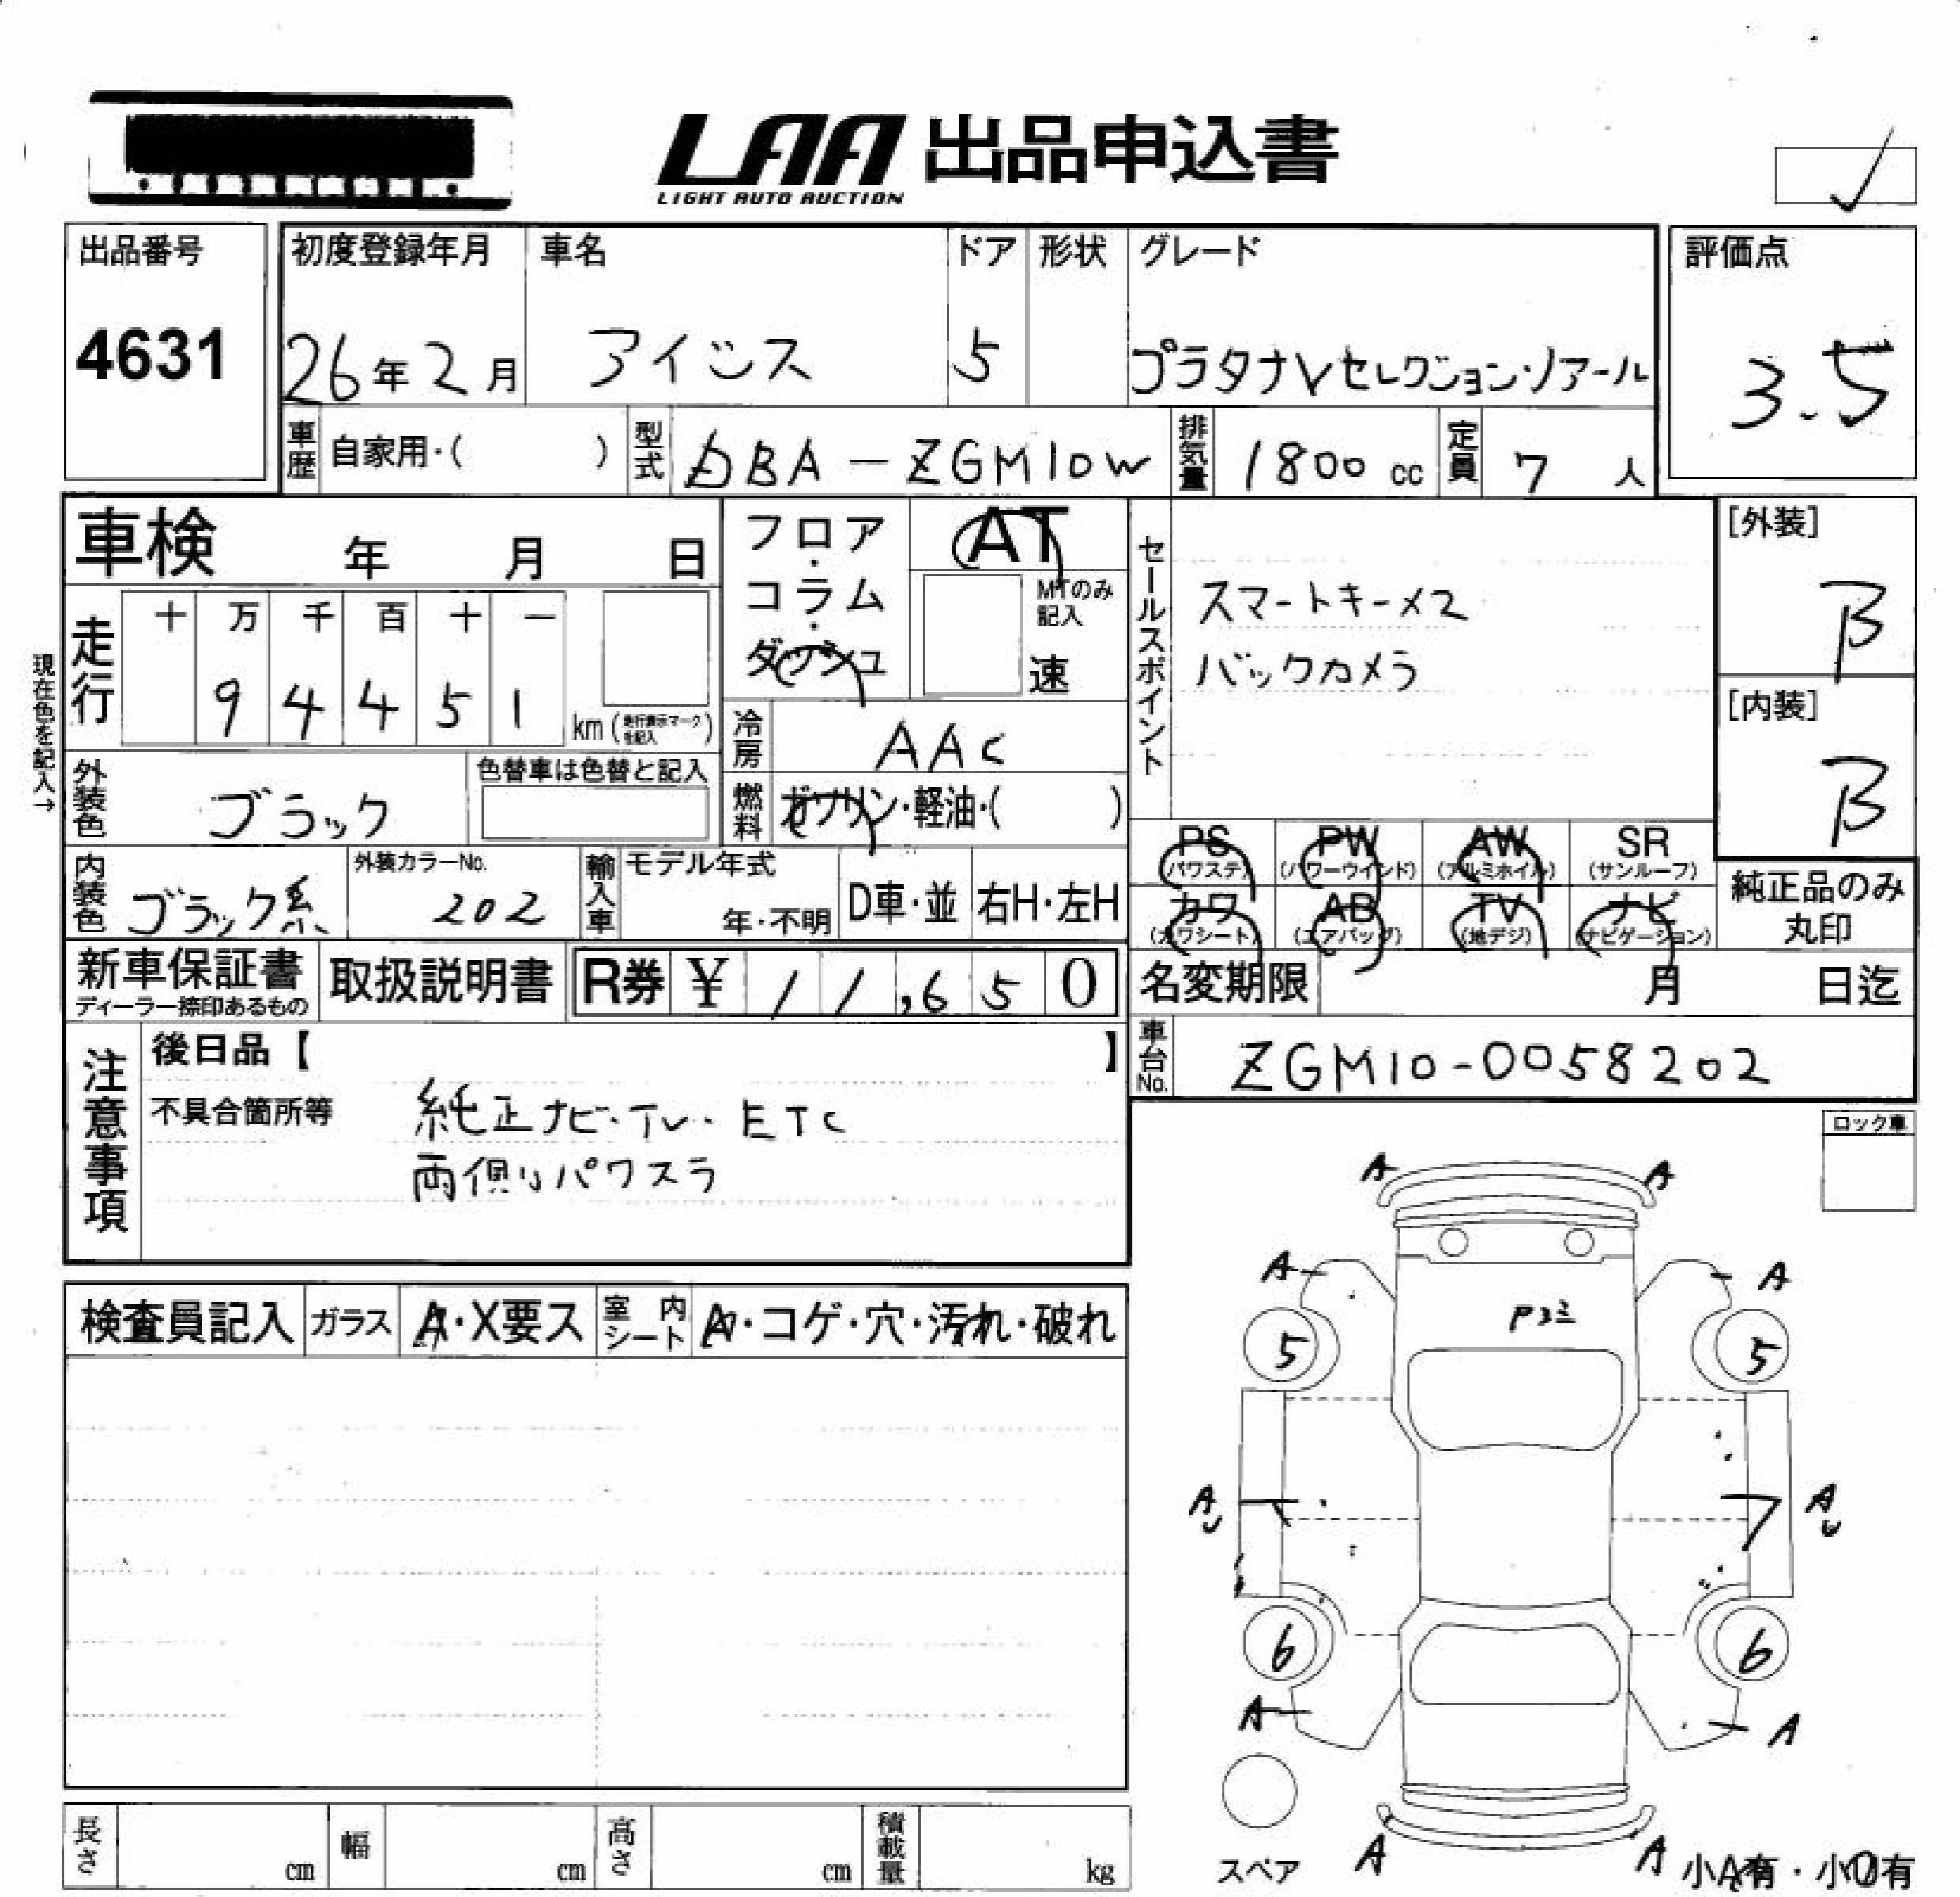 LAA 出品申込書
LIGHT AUTO AUCTION
出品番号
4631
初度登録年月
26年2月
車名
アイシス
ドア
5
形状
グレード
プラタナVセレクション・ノアール
評価点
3.5
車歴 自家用・( )
型式 DBA-ZGM10W
排気量 1800 cc
定員 7 人
車検 年 月 日
フロア・コラム・ダッシュ
AT
MTのみ記入
速
セールスポイント
スマートキーメ2
バックカメラ
[外装]
B
[内装]
B
現在色を記入→
走行
十 万 千 百 十 一
9 4 4 5 1
km (走行表示マークを記入)
冷房 AAC
燃料 ガソリン・軽油・( )
外装色 ブラック
色替車は色替と記入
内装色 ブラック系
外装カラーNo.
202
輸入車
モデル年式
年・不明
D車・並
右H・左H
PS (パワステ)
PW (パワーウインド)
AW (アルミホイル)
SR (サンルーフ)
カワ (カワシート)
AB (エアバッグ)
TV (地デジ)
ナビ (ナビゲーション)
純正品のみ
丸印
新車保証書
ディーラー捺印あるもの
取扱説明書
R券 ¥ 11,650
名変期限 月 日迄
車台No. ZGM10-0058202
注意事項
後日品【 】
不具合箇所等
純正ナビ・TV・ETC
両側パワスラ
ロック車
検査員記入
ガラス A・X要ス
室内シート A・コゲ・穴・汚れ・破れ
A A
A A
5 5
A A
6 6
A A
A A
スペア
小A有・小U有
長さ cm
幅 cm
高さ cm
積載量 kg